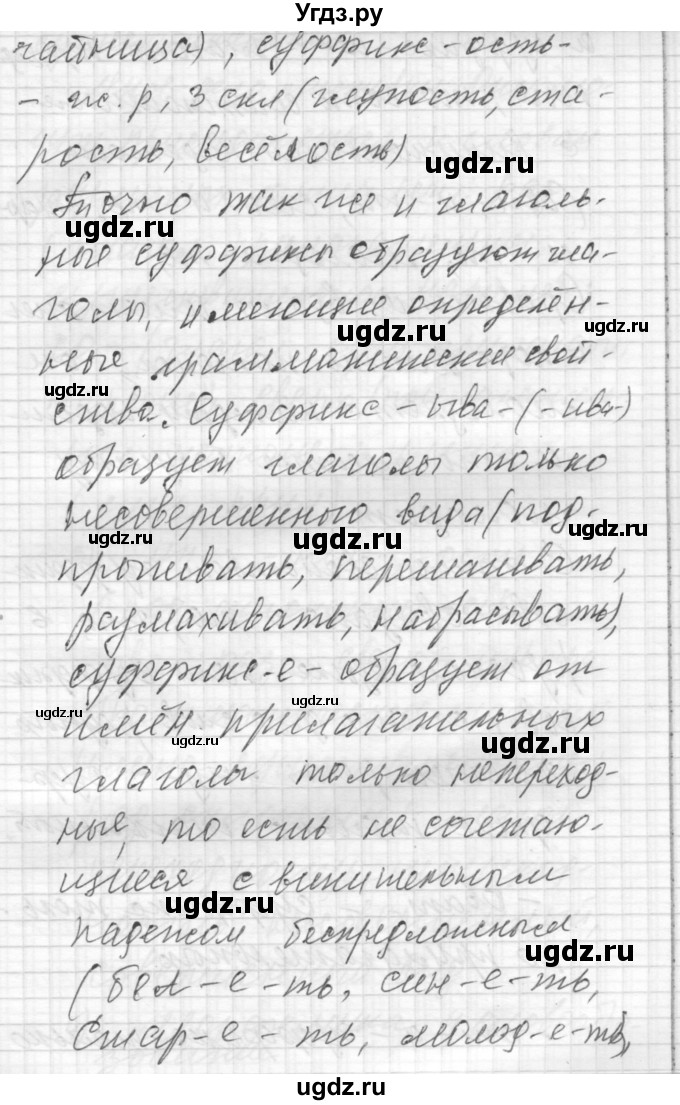 Угдз.ру
чайница), суффикс -ость-
- ж. р, 3 скл (глупость, ста-
рость, весёлость)
ugdz.ru
Точно так же и глаголь-
ugdz.ru
ные суффиксы образуют гла-
голы, имеющие определён-
ugdz.ru
ные грамматические свой-
ugdz.ru
ства. Суффикс -ыва-(-ива-)
образует глаголы только
несовершенного вида (под-
ugdz.ru ugdz.ru
прыгивать, перешагивать,
размахивать, набрасывать),
суффикс -е- образует от
ugdz.ru ugdz.ru
имён прилагательных
ugdz.ru ugdz.ru
глаголы только непереход-
ные, то есть не сочетаю-
щиеся с винительным
ugdz.ru
падежом беспредложным
ugdz.ru
(бел-е-ть, син-е-ть,
стар-е-ть, молод-е-ть),
ugdz.ru